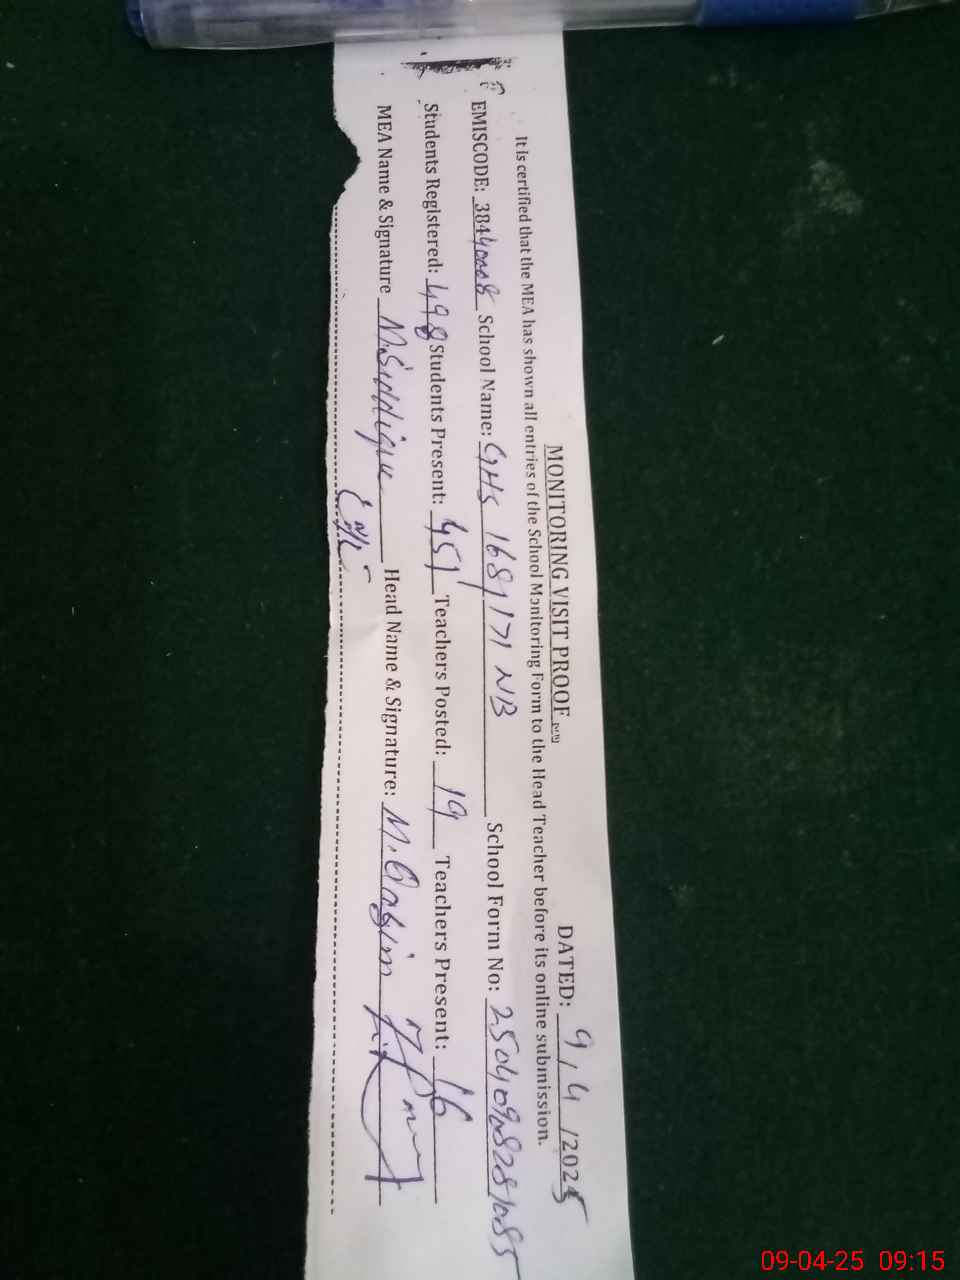 MONITORING VISIT PROOF
DATED: 9/4/2025
It is certified that the MEA has shown all entries of the School Monitoring Form to the Head Teacher before its online submission.
EMISCODE: 38440008 School Name: GHS 168/171 NB School Form No:
Students Registered: 498 Students Present: 451 Teachers Posted: 19 Teachers Present: 16
MEA Name & Signature M. Siddique Head Name & Signature: M. Qasim
09-04-25 09:15